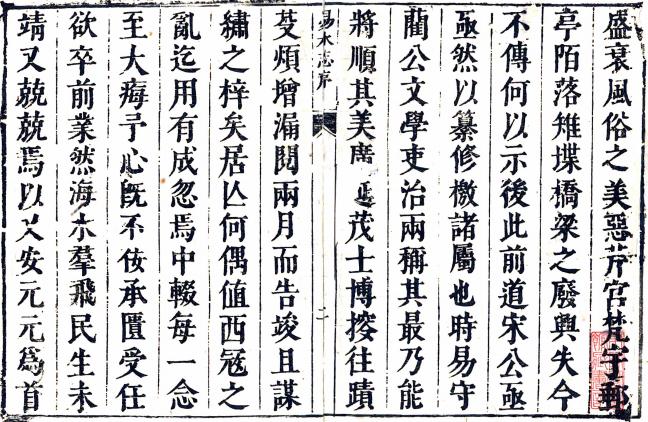 盛衰風俗之美惡芹宮梵宇郵
亭陌落雉堞橋梁之廢興失今
不傳何以示後此前道宋公亟
亟然以纂修檄諸屬也時易守
藺公文學吏治兩稱其最乃能
將順其美廣延茂士博搜往蹟
易水志序 二
芟煩增漏閱兩月而告竣且謀
繡之梓矣居亾何偶值西冦之
亂迄用有成忽焉中輟每一念
至大痗予心旣不佞承匱受任
欲卒前業然海水羣飛民生未
靖又兢兢焉以乂安元元爲首